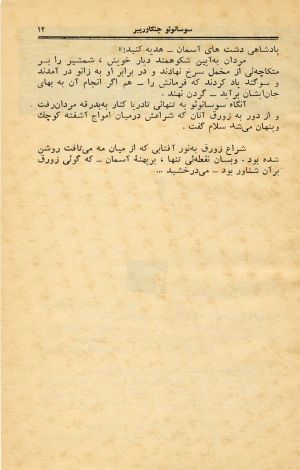 سوسانوئو جنگاورپیر ۱۲
پادشاهی دشت های آسمان ــ هدیه کنید!»
مردان به‌آیین شکوهمند دیار خویش ، شمشیر را بر
متکاچه‌ئی از مخمل سرخ نهادند و در برابر او به زانو در آمدند
و سوگند یاد کردند که فرمانش را ــ هم اگر انجام آن به بهای
جان‌ایشان برآید ــ گردن نهند .
آنگاه سوسانوئو به تنهائی تادریا کنار به‌بدرقه مردان‌رفت
و از دور به زورق آنان که شراعش درمیان امواج آشفته کوچك
وپنهان می‌شد سلام گفت .
شراع زورق به‌نور آفتابی که از میان مه می‌تافت روشن
شده بود . وبسان نقطه‌ئی تنها ، برپهنهٔ آسمان ــ که گوئی زورق
برآن شناور بود ــ می‌درخشید ...